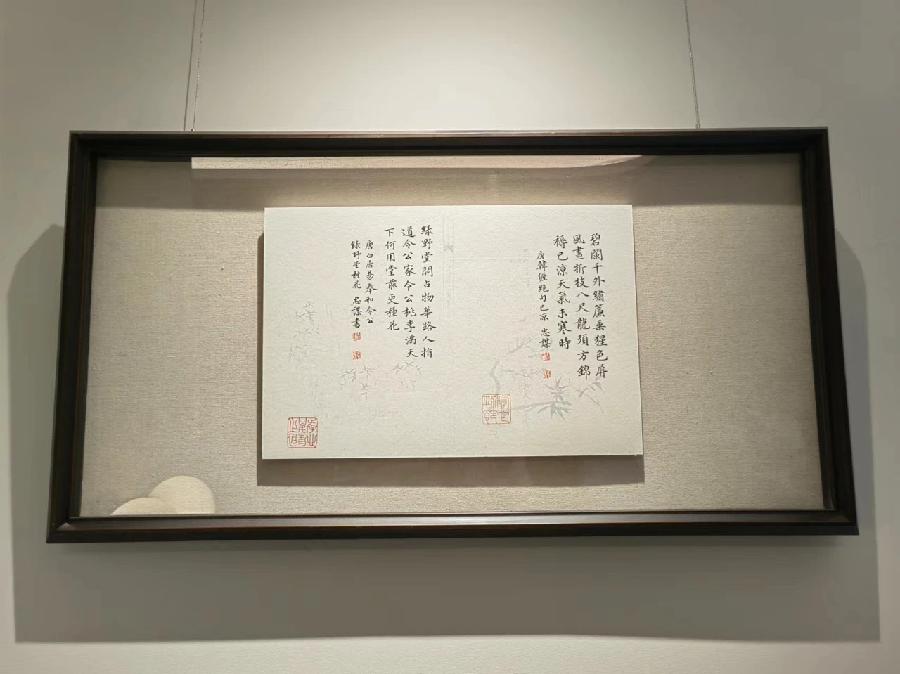 碧闌干外繡簾垂猩色屏
風畫折枝八尺龍須方錦
褥已涼天氣未寒時
唐韓偓絕句已涼 忠謀
綠野堂開占物華路人指
道令公家令公桃李滿天
下何用堂前更種花
唐白居易奉和令公
綠野堂種花 忠謀書